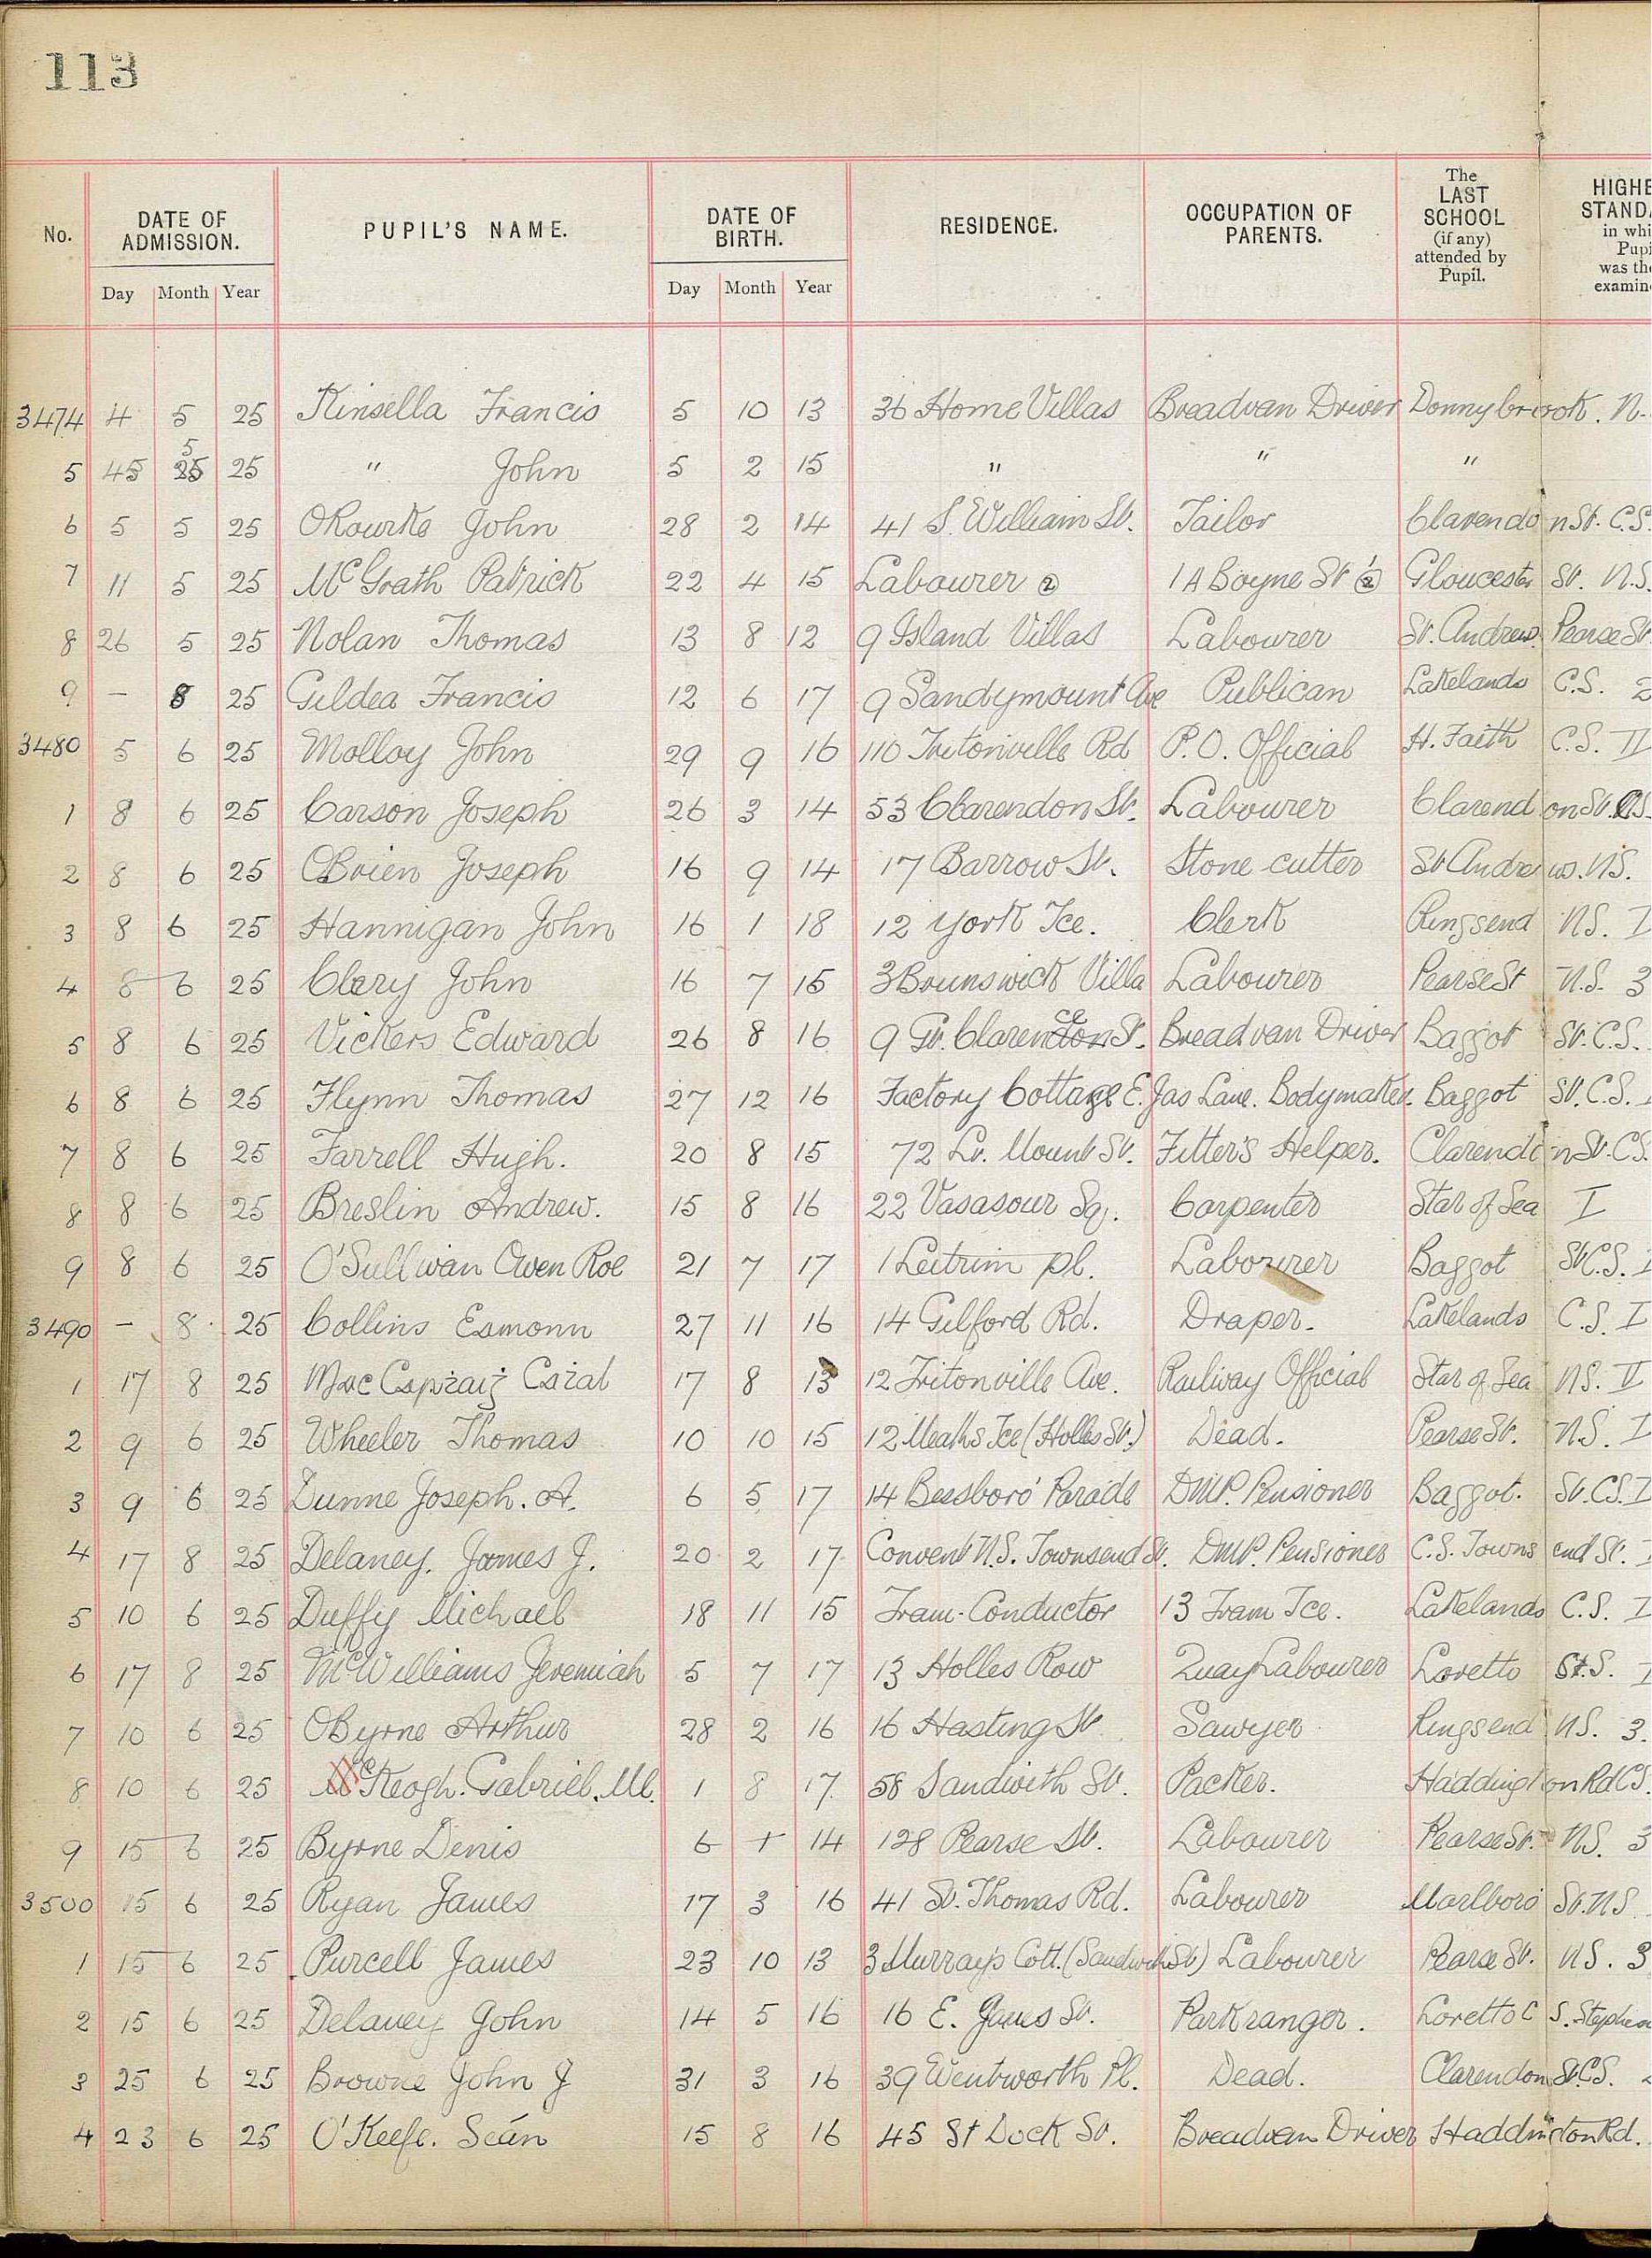 113
No. DATE OF ADMISSION. PUPIL'S NAME. DATE OF BIRTH. RESIDENCE. OCCUPATION OF PARENTS. The LAST SCHOOL (if any) attended by Pupil. HIGHE STANDA in whi Pupi was the examine
Day Month Year Day Month Year
3474 4 5 25 Kinsella Francis 5 10 13 36 Home Villas Breadvan Driver Donnybrook. N.
5 45 25 5 25 " John 5 2 15 " " "
6 5 5 25 O'Rourke John 28 2 14 41 S. William St. Tailor Clarendon St. C.S.
7 11 5 25 McGrath Patrick 22 4 15 Labourer 2 1A Boyne St 1 2 Gloucester St. N.S.
8 26 5 25 Nolan Thomas 13 8 12 9 Island Villas Labourer St. Andrews. Pearse St
9 — 8 25 Gildea Francis 12 6 17 9 Sandymount Ave Publican Lakelands C.S. 2
3480 5 6 25 Molloy John 29 9 16 110 Tritonville Rd P.O. Official H. Faith C.S. II
1 8 6 25 Carson Joseph 26 3 14 53 Clarendon St. Labourer Clarendon St. C.S.
2 8 6 25 O'Brien Joseph 16 9 14 17 Barrow St. Stone cutter St Andrews. N.S.
3 8 6 25 Hannigan John 16 1 18 12 York Tce. Clerk Ringsend N.S. I
4 8 6 25 Clery John 16 7 15 3 Brunswick Villa Labourer Pearse St N.S. 3
5 8 6 25 Vickers Edward 26 8 16 9 Gt. Clarence St. Breadvan Driver Baggot St. C.S.
6 8 6 25 Flynn Thomas 27 12 16 Factory Cottage E. Jas Lane. Bodymaker. Baggot St. C.S.
7 8 6 25 Farrell Hugh. 20 8 15 72 Lr. Mount St. Fitter's Helper. Clarendon St. C.S.
8 8 6 25 Breslin Andrew. 15 8 16 22 Vasasour Sq. Carpenter Star of Sea I
9 8 6 25 O'Sullivan Owen Roe 21 7 17 1 Leitrim pl. Labourer Baggot St C.S. I
3490 — 8 25 Collins Eamonn 27 11 16 14 Gilford Rd. Draper. Lakelands C.S. I
1 17 8 25 Mac 17 8 13 12 Tritonville Ave. Railway Official Star of Sea N.S. II
2 9 6 25 Wheeler Thomas 10 10 15 12 Meaths Tce (Holles St.) Dead. Pearse St. N.S. I
3 9 6 25 Dunne Joseph. A. 6 5 17 14 Bessboro' Parade D.M.P. Pensioner Baggot. St. C.S. I
4 17 8 25 Delaney, James J. 20 2 17 Convent N.S. Townsend St. D.M.P. Pensioner C.S. Townsend St.
5 10 6 25 Duffy Michael 18 11 15 Tram-Conductor 13 Tram Tce. Lakelands C.S. I
6 17 8 25 McWilliams Jeremiah 5 7 17 13 Holles Row Quay Labourer Loretto St. S. I
7 10 6 25 O'Byrne Arthur 28 2 16 16 Hasting St Sawyer Ringsend N.S. 3.
8 10 6 25 McKeogh. Gabriel. M. 1 8 17 58 Sandwith St. Packer. Haddington Rd C.S.
9 15 6 25 Byrne Denis 6 1 14 128 Pearse St. Labourer Pearse St. N.S. 3
3500 15 6 25 Ryan James 17 3 16 41 St. Thomas Rd. Labourer Marlboro St. N.S
1 15 6 25 Purcell James 23 10 13 3 Murray's Cott. (Sandwith St) Labourer Pearse St. N.S. 3
2 15 6 25 Delaney John 14 5 16 16 E. James St. Park ranger. Loretto C S. Stephen
3 25 6 25 Browne John J 31 3 16 39 Wentworth Pl. Dead. Clarendon St. C.S.
4 23 6 25 O'Keefe. Seán 15 8 16 45 St Dock St. Breadvan Driver Haddington Rd.